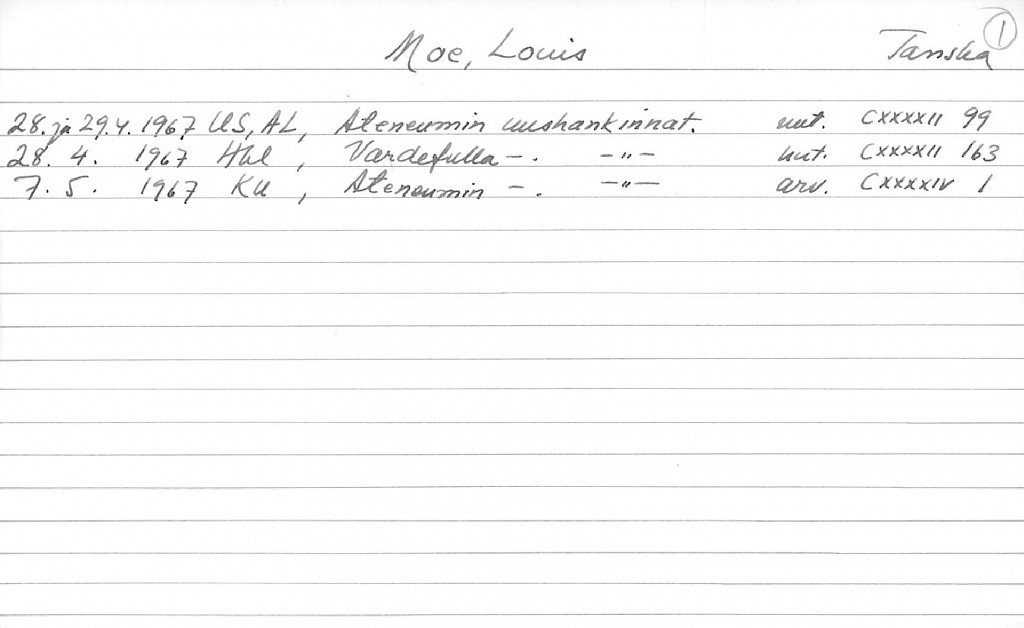 Moe, Louis Tanska 1
28. ja 29.4. 1967 US, AL, Ateneumin uushankinnat. uut. CXXXXII 99
28. 4. 1967 Hbl, Vardefulla -. -"- uut. CXXXXII 163
7. 5. 1967 KU, Ateneumin -. -"- arv. CXXXXIV 1